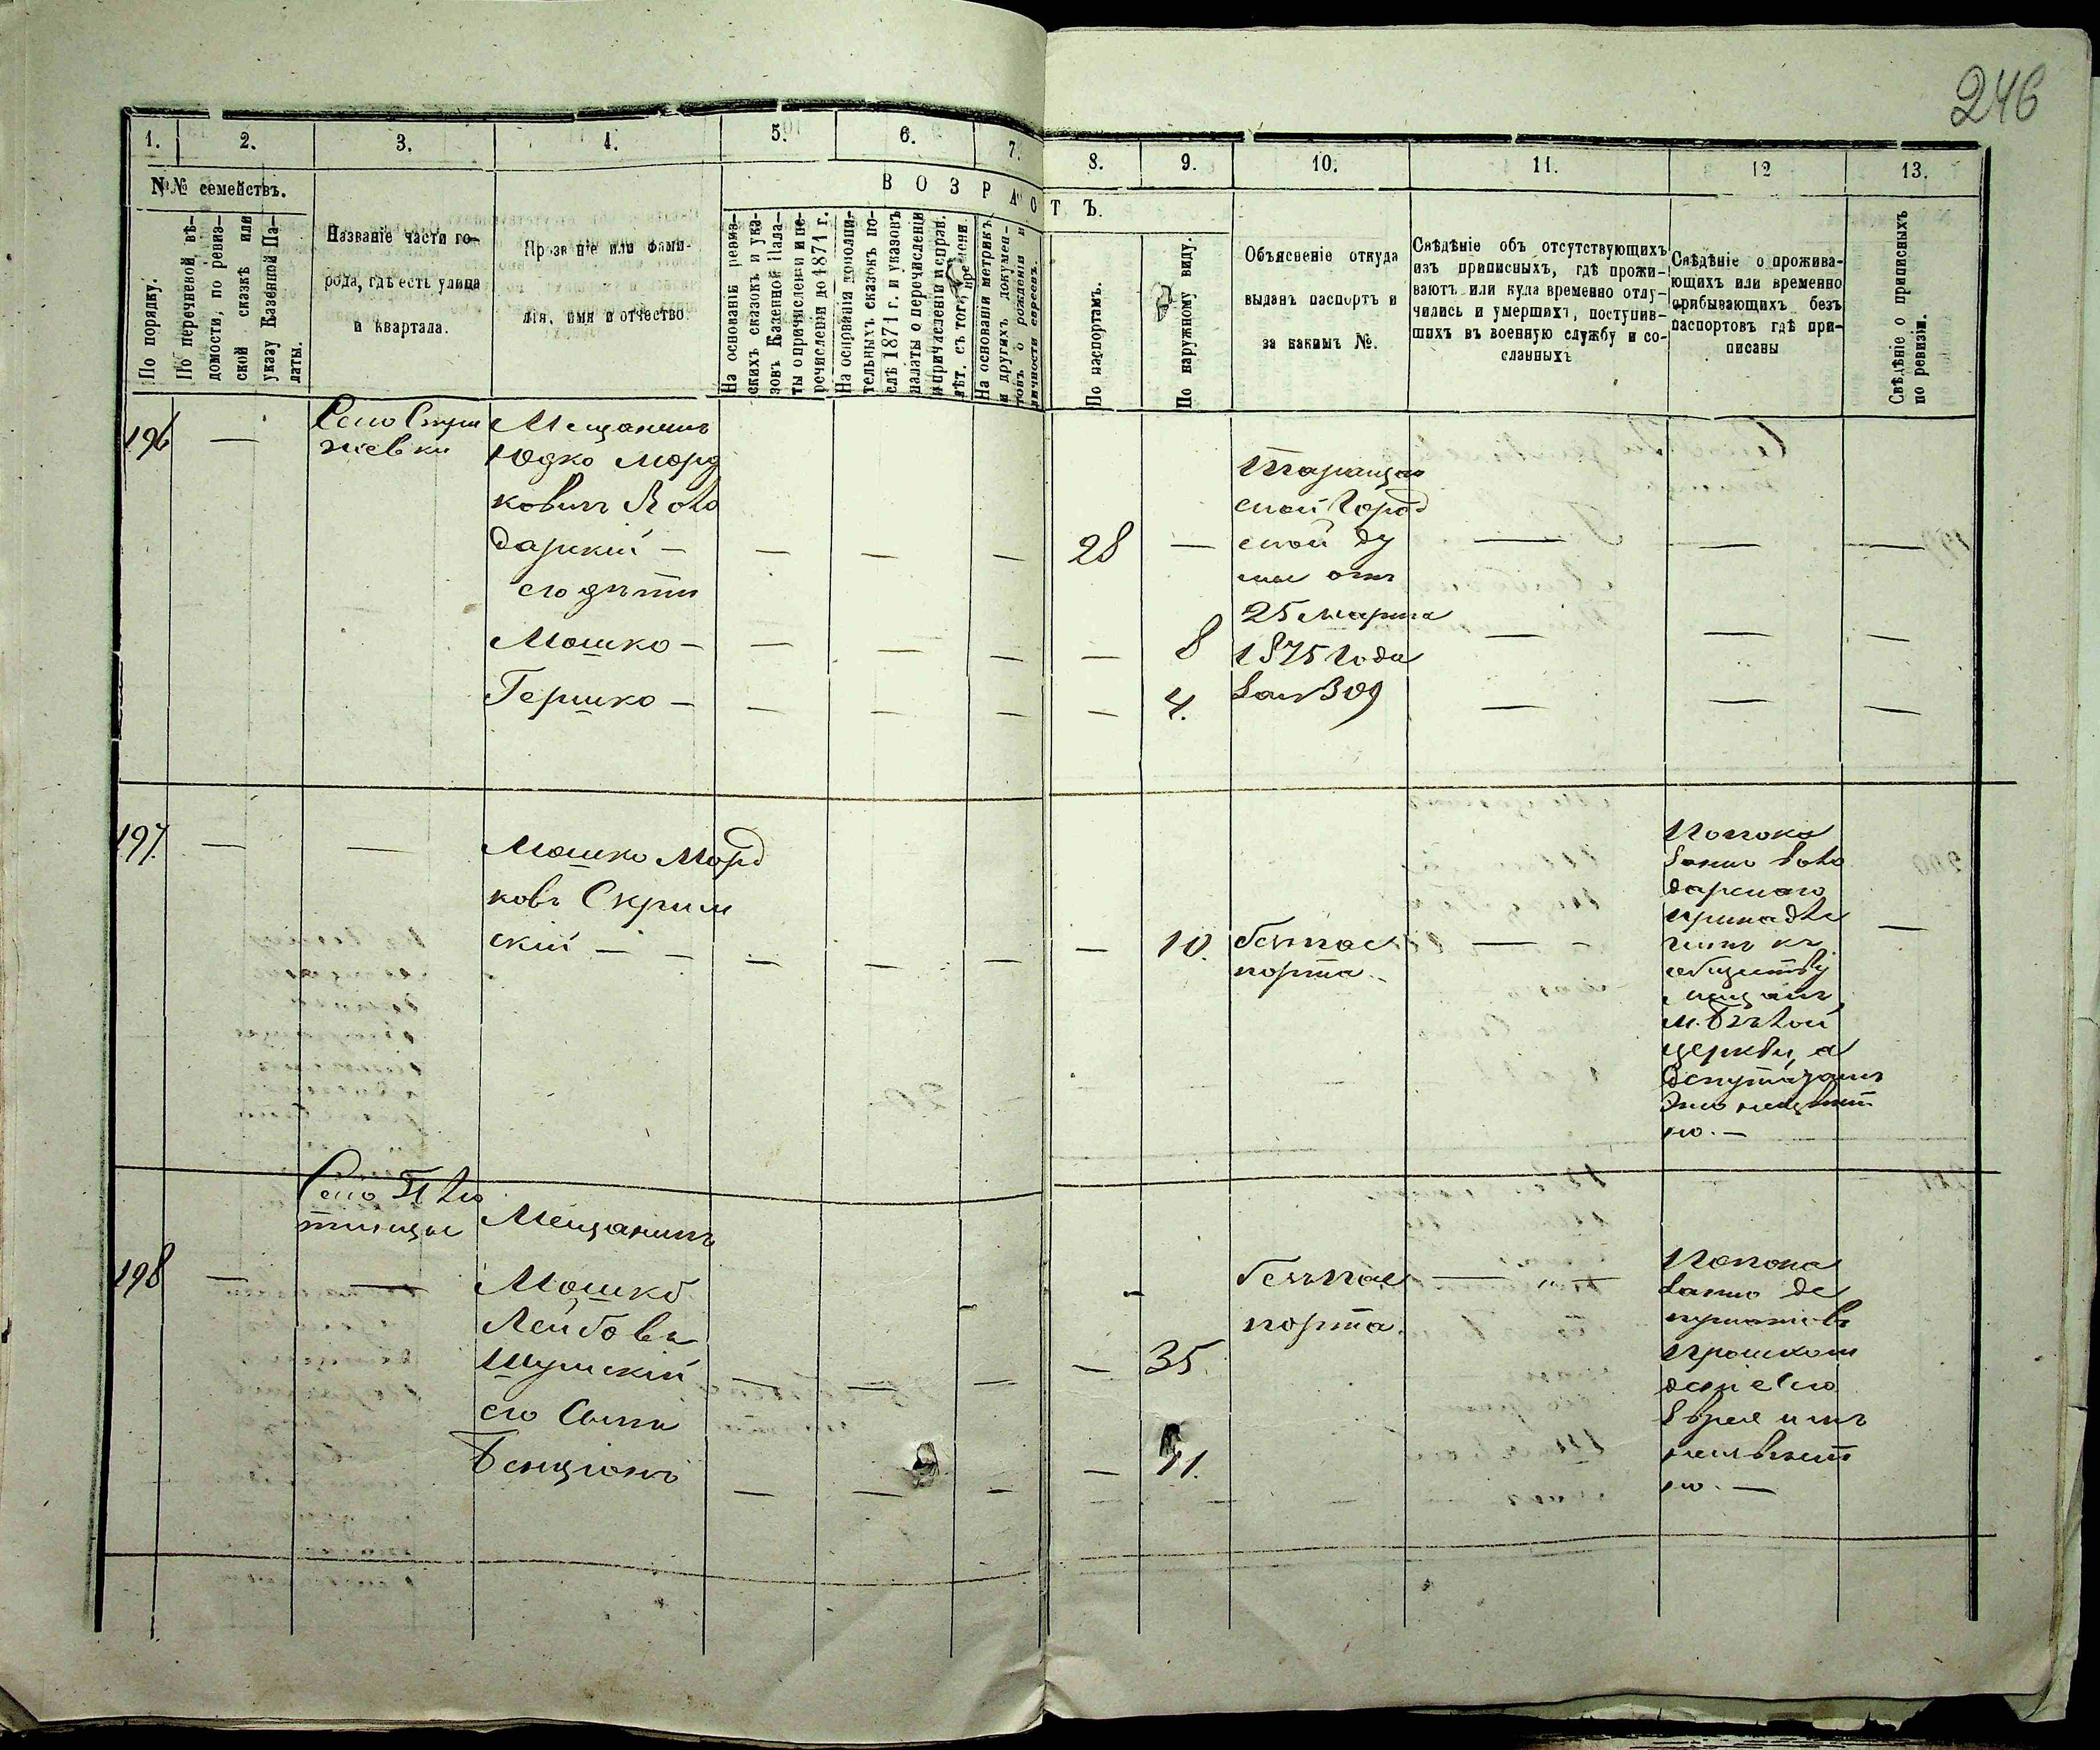 246
1. 2. 3. 4. 5. 6. 7. 8. 9. 10. 11. 12 13.
№№ семействъ.
По порядку.
По перечневой вѣ-
домости, по ревиз-
ской сказкѣ или
указу Казенной Па-
латы.
Названіе части го-
рода, гдѣ есть улица
и квартала.
Прозваніе или фами-
лія, имя и отчество.
ВОЗРАСТЪ.
На основаніи ревиз-
скихъ сказокъ и ука-
зовъ Казенной Пала-
ты о причисленіи и пе-
речисленіи до 1871 г.
На основаніи дополни-
тельныхъ сказокъ по-
слѣ 1871 г. и указовъ
палаты о перечисленіи
и причисленіи и справ.
лѣт. съ того времени.
На основаніи метрикъ
и другихъ докумен-
товъ о рожденіи и
личности евреевъ.
По паспортамъ.
По наружному виду.
Объясненіе откуда
выданъ паспортъ и
за какимъ №.
Свѣдѣніе объ отсутствующихъ
изъ приписныхъ, гдѣ прожи-
ваютъ или куда временно отлу-
чились и умершихъ, поступив-
шихъ въ военную службу и со-
сланныхъ
Свѣдѣніе о прожива-
ющихъ или временно
прибывающихъ безъ
паспортовъ гдѣ при-
писаны
Свѣдѣніе о приписныхъ
по ревизіи.
196 —
Село
жевки
Мещанинъ
Юдко Морд
ковичъ Воло
дарскій — — — — 28 — — — —
его дѣти
Мошко — — — — — 8 — — —
Гершко — — — — — 4. — — —
Таращан
ской Город
ской Ду
мы отъ
25 марта
1875 года
за № 309
197. — —
Мошко Морд
ковъ Скрим
скій — — — — — — 10. — — —
безъ пас
порта —
По пока
занію Воло
дарскаго
принадле
житъ къ
обществу
мещанъ
м. Бѣлой
церкви, а
депутатамъ
это неизвѣст
но. —
198 — —
Село
Мещанинъ
Мошко
Лейбовъ
Шумскій — — — — 35.
его сынъ
Бенціонъ — — — — 11.
безъ пас — —
порта.
По пока
занію де
путатовъ
сего
еврея имъ
неизвѣст
но. —